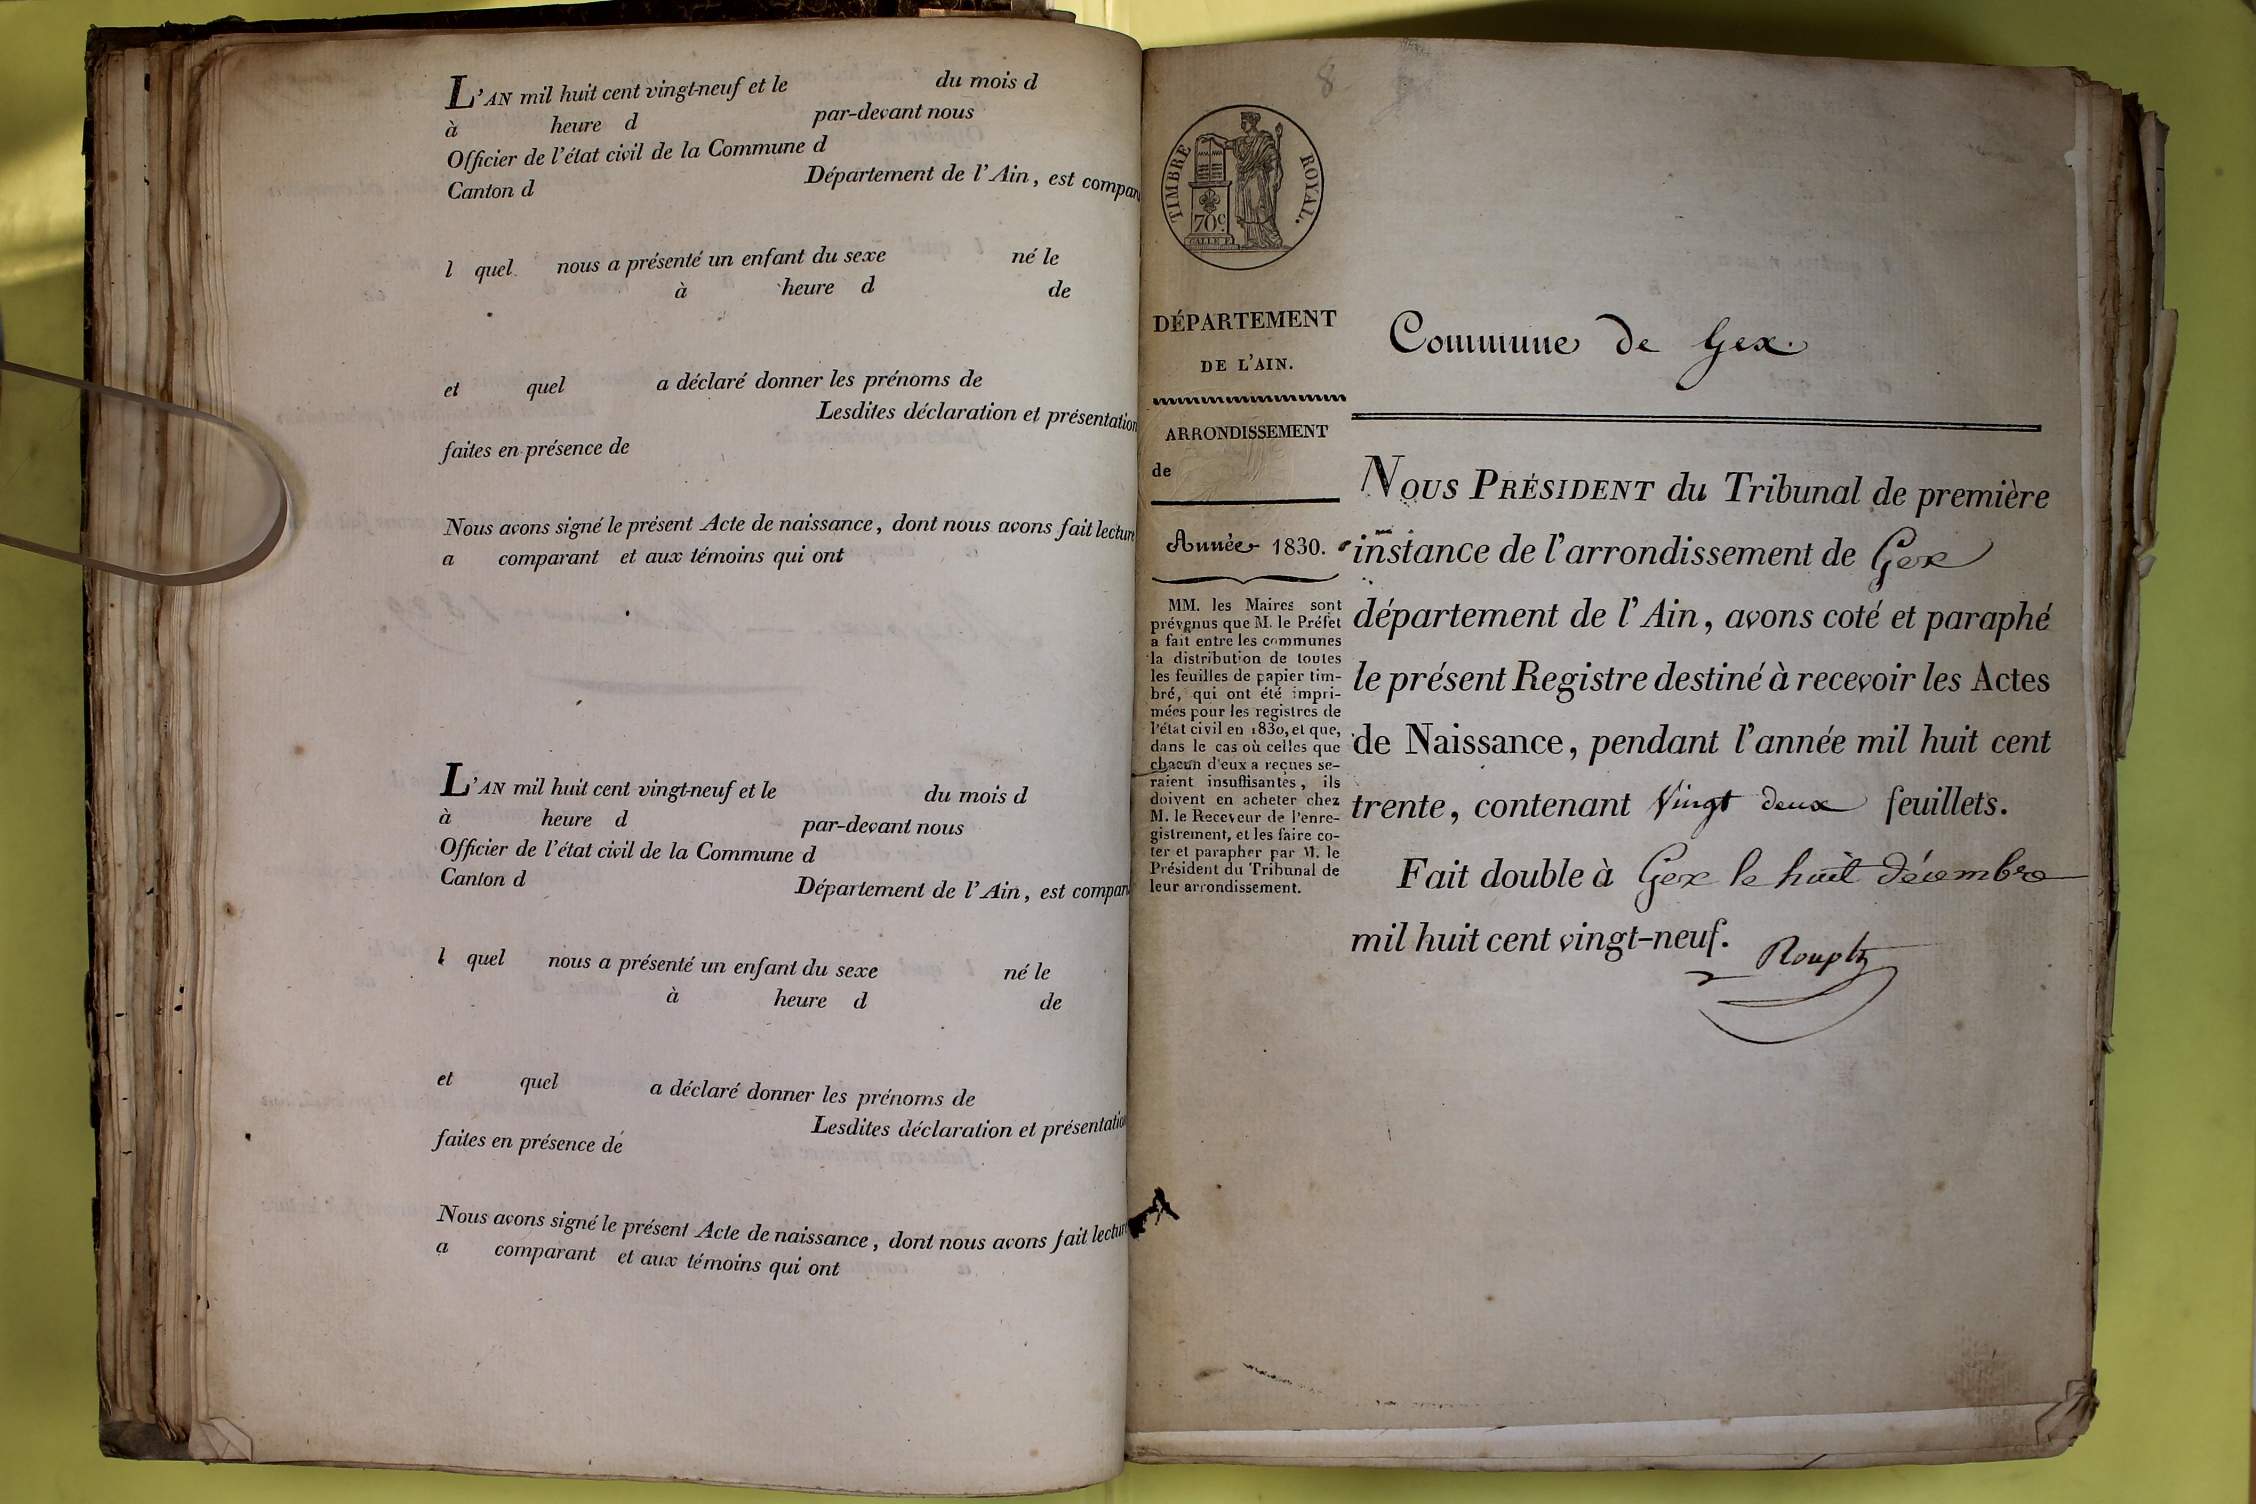 L'AN mil huit cent vingt-neuf et le du mois d
à heure d par-devant nous
Officier de l'état civil de la Commune d
Canton d Département de l'Ain, est compar
l quel nous a présenté un enfant du sexe né le
à heure d de
et quel a déclaré donner les prénoms de
Lesdites déclaration et présentation
faites en présence de
Nous avons signé le présent Acte de naissance, dont nous avons fait lectur
a comparant et aux témoins qui ont
L'AN mil huit cent vingt-neuf et le du mois d
à heure d par-devant nous
Officier de l'état civil de la Commune d
Canton d Département de l'Ain, est compar
l quel nous a présenté un enfant du sexe né le
à heure d de
et quel a déclaré donner les prénoms de
Lesdites déclaration et présentatio
faites en présence de
Nous avons signé le présent Acte de naissance, dont nous avons fait lectur
a comparant et aux témoins qui ont
8
TIMBRE ROYAL.
70c
DÉPARTEMENT
DE L'AIN.
ARRONDISSEMENT
de
Année 1830.
MM. les Maires sont
prévenus que M. le Préfet
a fait entre les communes
la distribution de toutes
les feuilles de papier tim-
bré, qui ont été impri-
mées pour les registres de
l'état civil en 1830, et que,
dans le cas où celles que
chacun d'eux a reçues se-
raient insuffisantes, ils
doivent en acheter chez
M. le Receveur de l'enre-
gistrement, et les faire co-
ter et parapher par M. le
Président du Tribunal de
leur arrondissement.
Commune de Gex.
NOUS PRÉSIDENT du Tribunal de première
instance de l'arrondissement de Gex
département de l'Ain, avons coté et paraphé
le présent Registre destiné à recevoir les Actes
de Naissance, pendant l'année mil huit cent
trente, contenant Vingt deux feuillets.
Fait double à Gex le huit décembre
mil huit cent vingt-neuf.